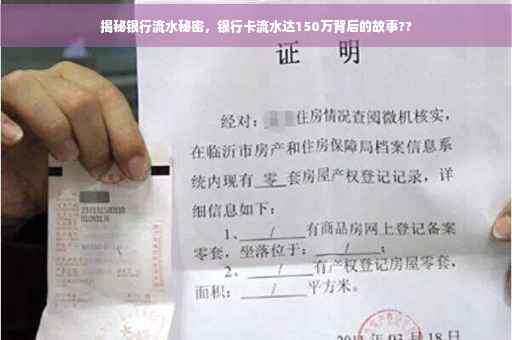 揭秘银行流水秘密，银行卡流水达150万背后的故事??
证 明
经对：住房情况查阅微机核实，
在临沂市房产和住房保障局档案信息系
统内现有 零 套房屋产权登记记录，详
细信息如下：
1、 / 有商品房网上登记备案
零套，坐落位于： / ；
2、 / 有产权登记房屋零套，
面积： / 平方米。
年 03 月 18 日